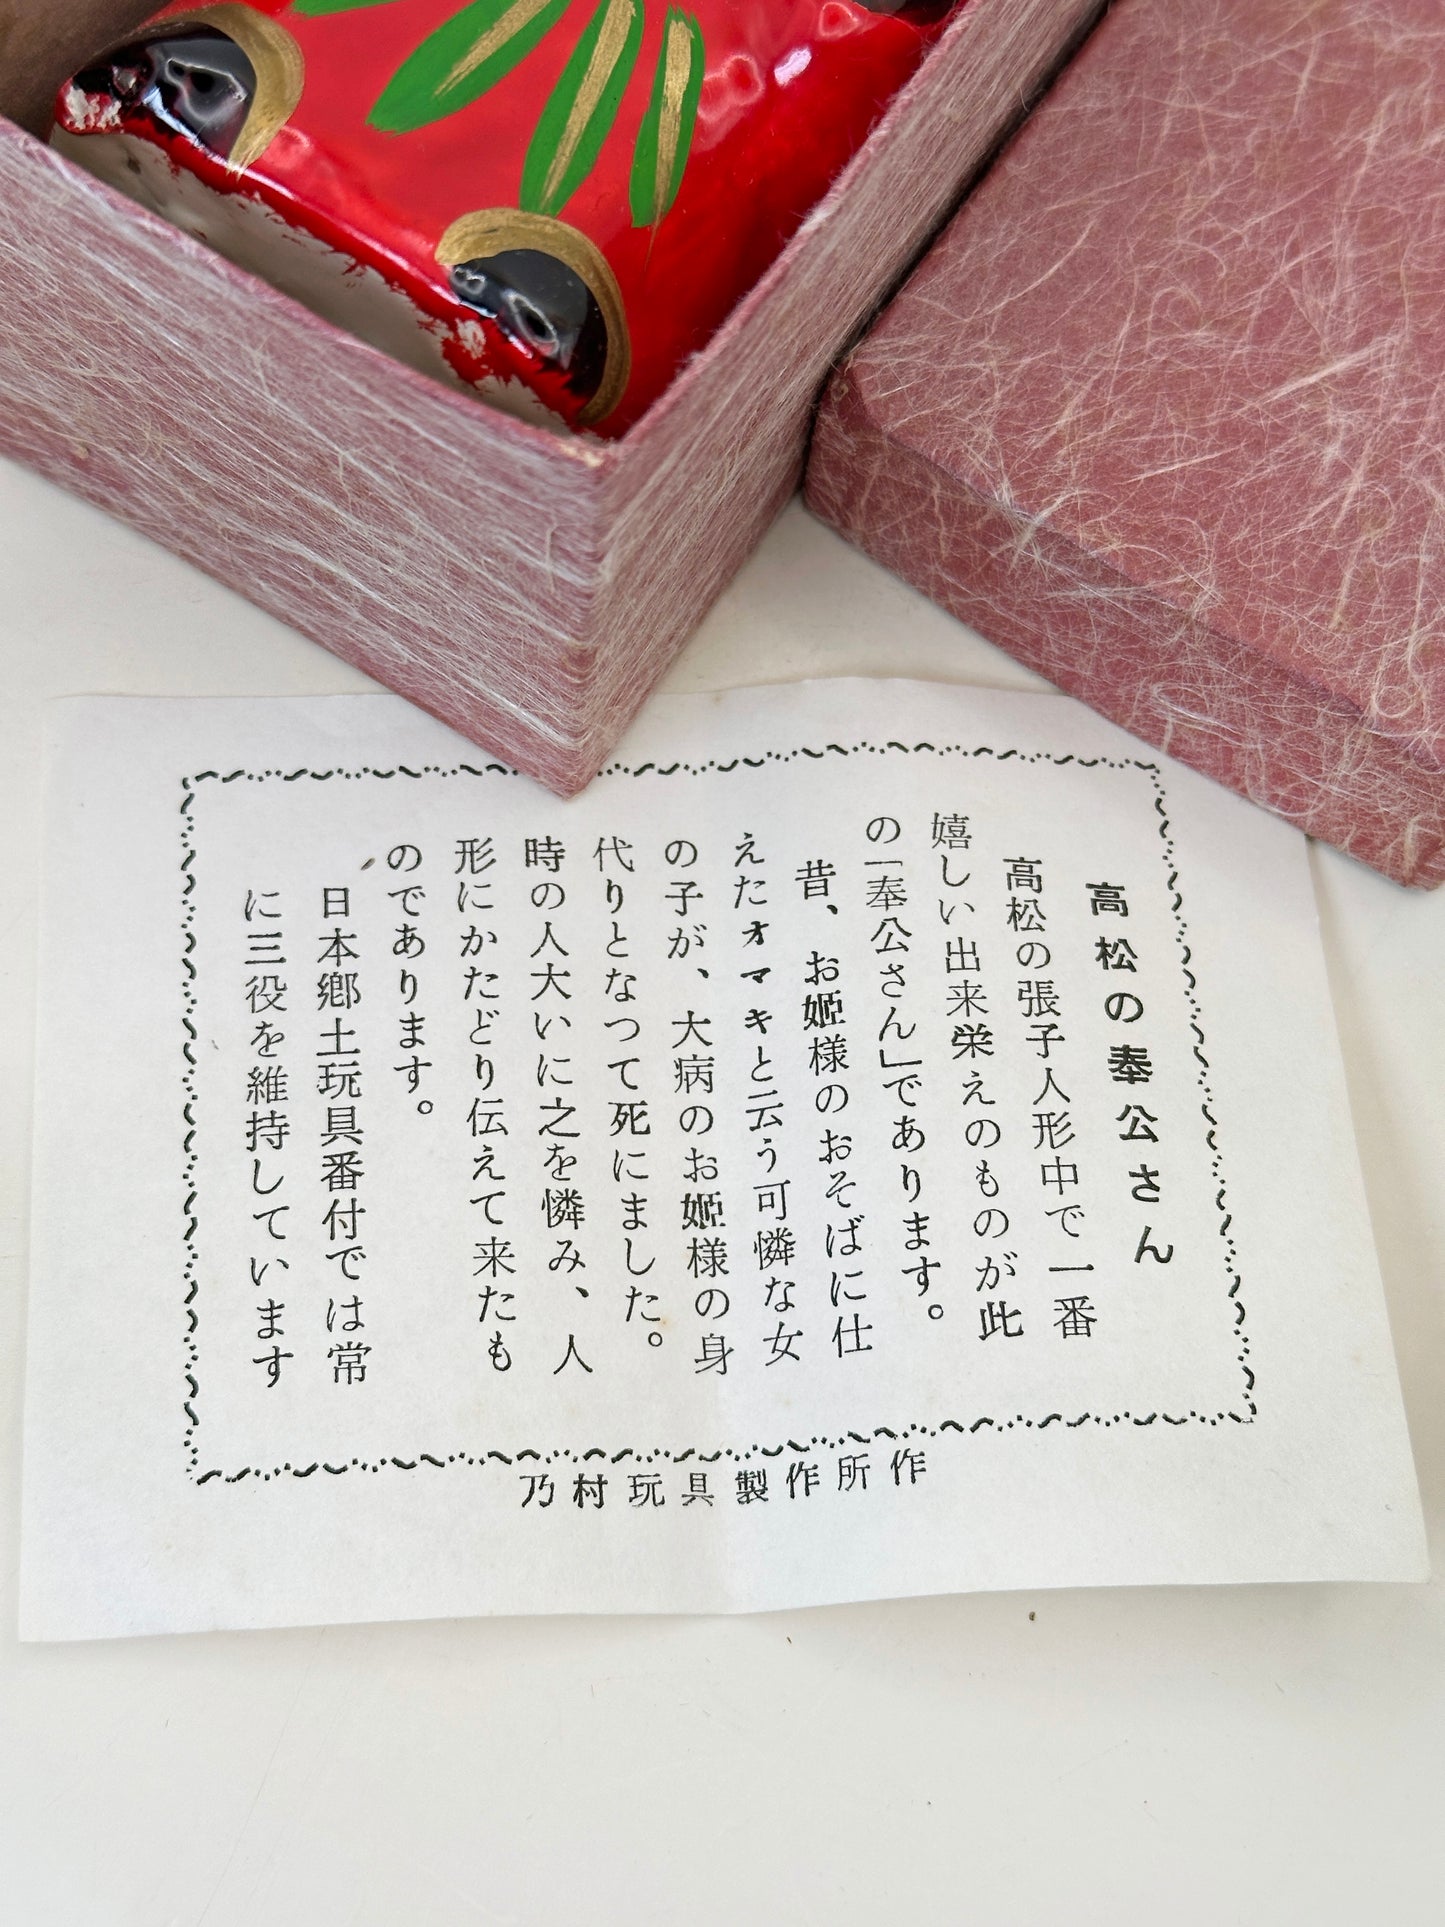 高松の奉公さん
高松の張子人形中で一番
嬉しい出来栄えのものが此
の「奉公さん」であります。
昔、お姫様のおそばに仕
えたオマキと云う可憐な女
の子が、大病のお姫様の身
代りとなつて死にました。
時の人大いに之を憐み、人
形にかたどり伝えて来たも
のであります。
日本郷土玩具番付では常
に三役を維持しています
乃村玩具製作所作